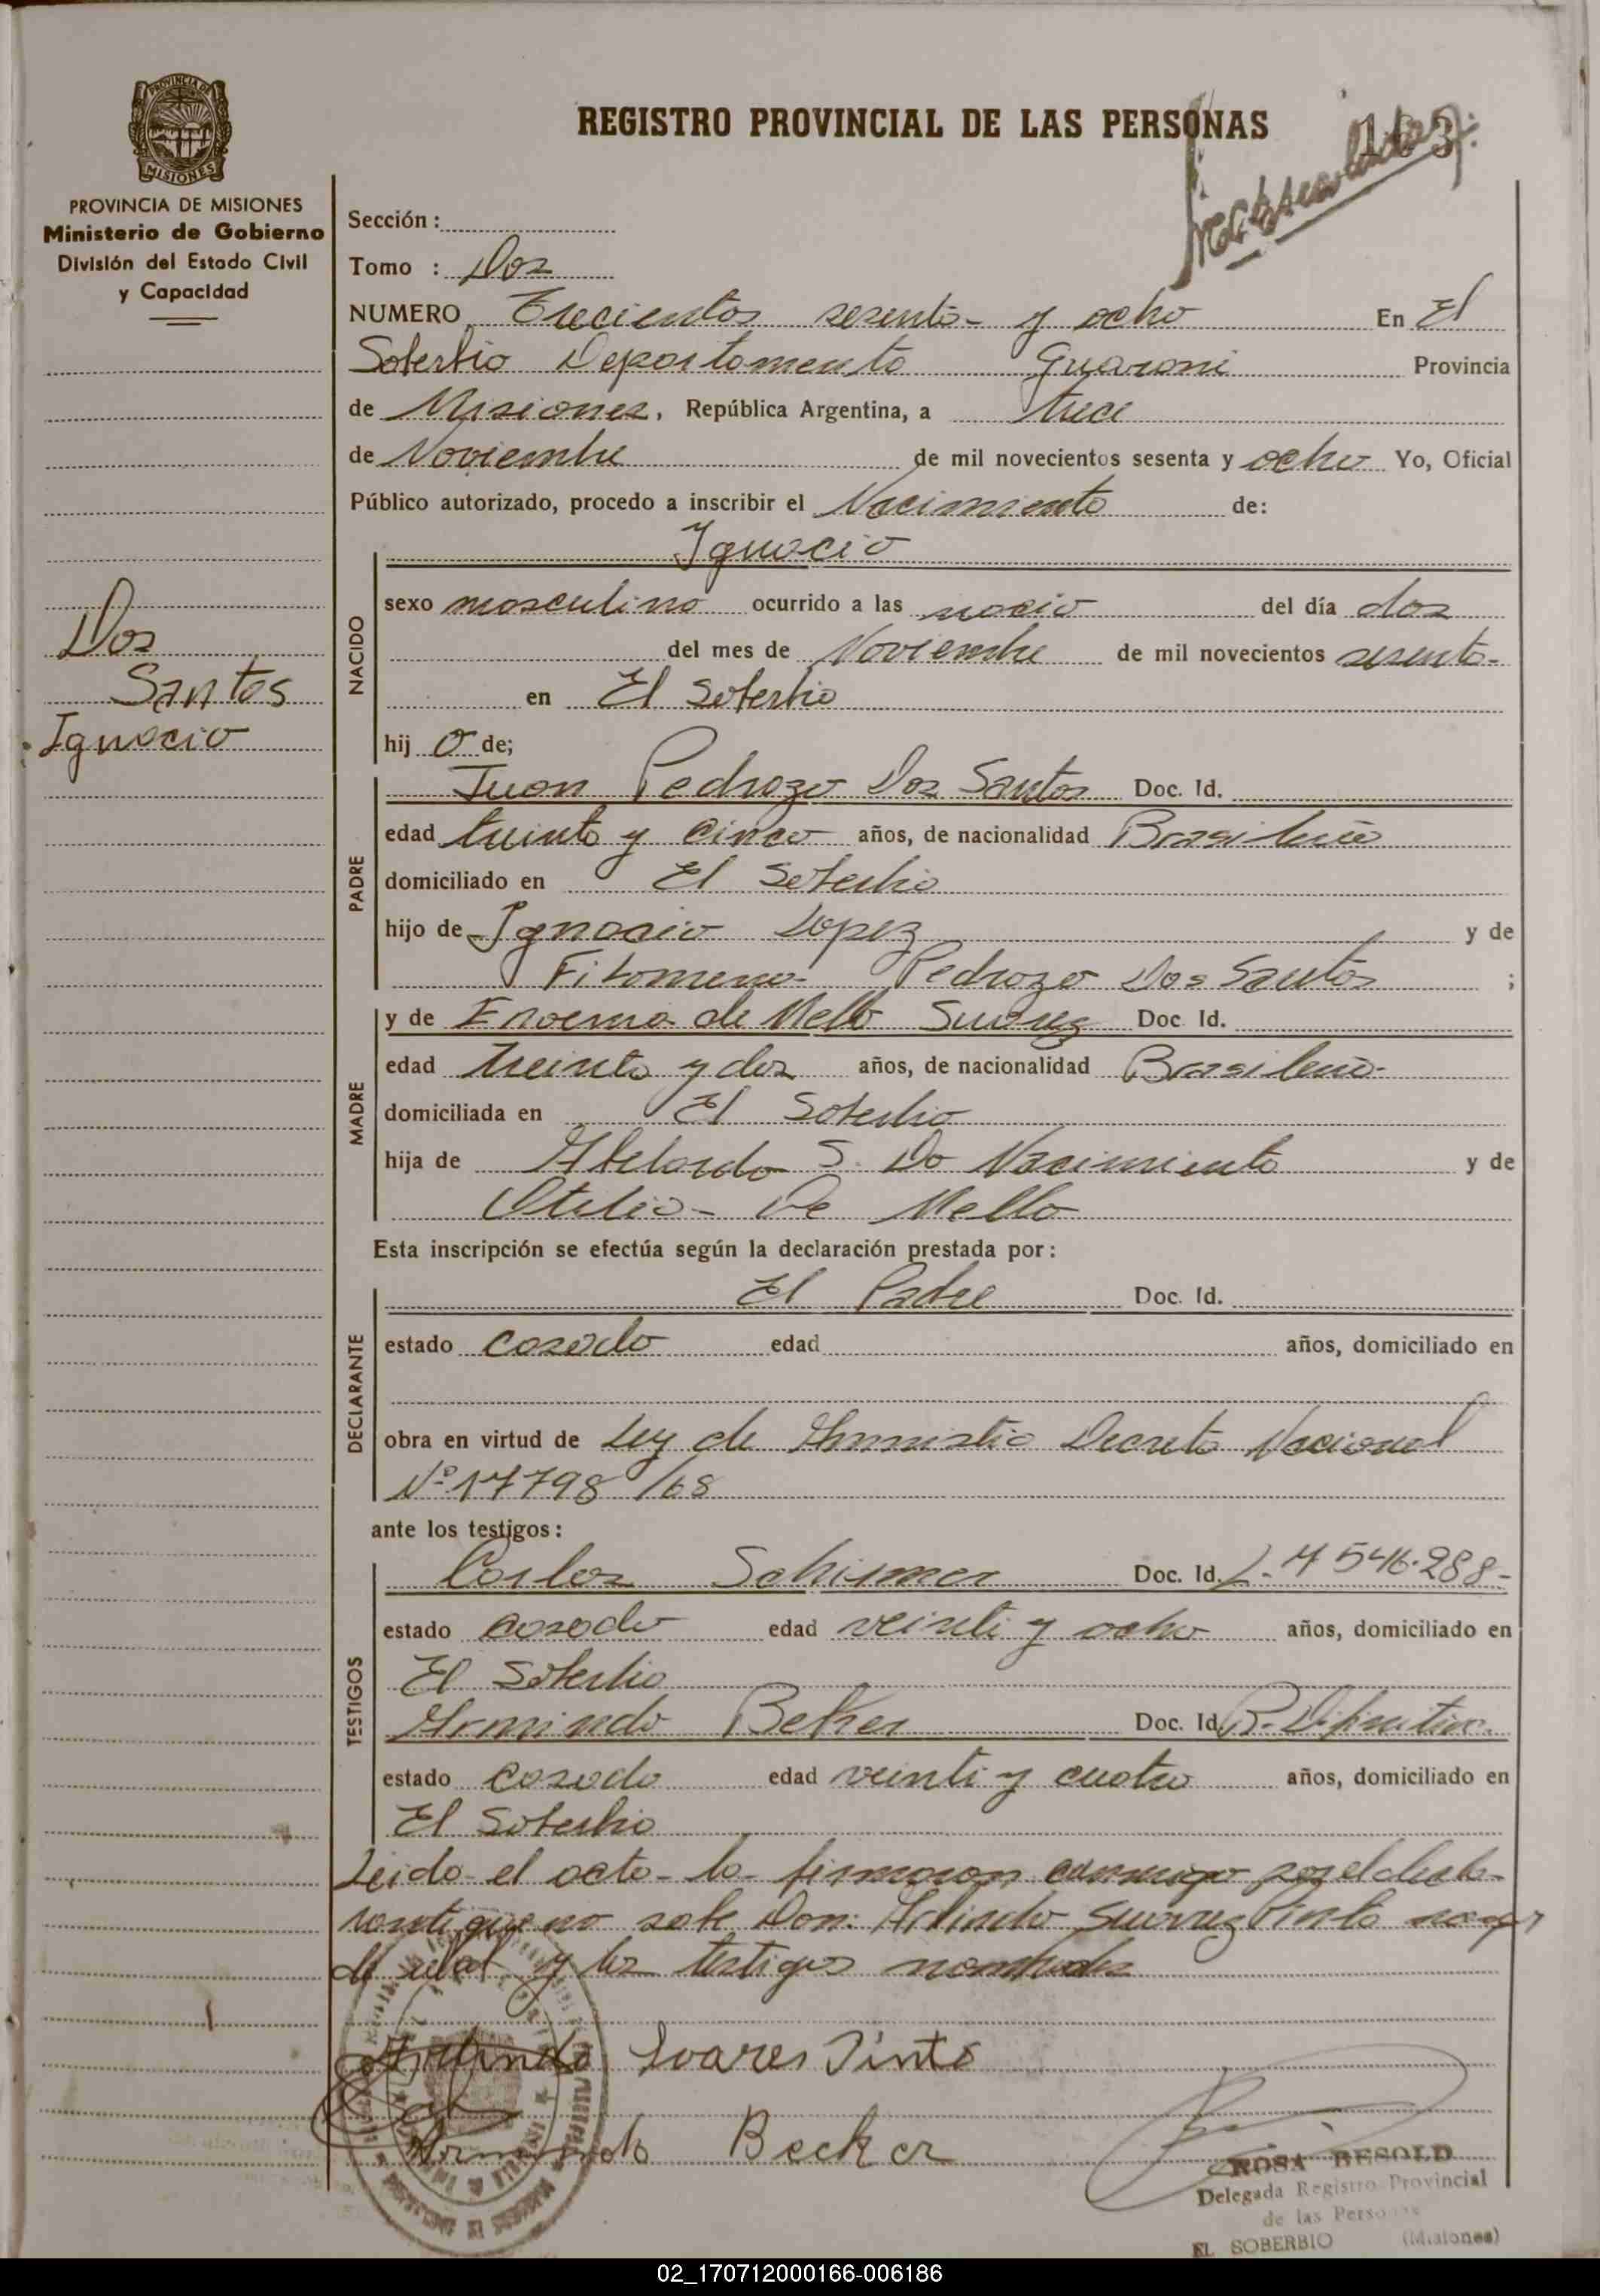 REGISTRO PROVINCIAL DE LAS PERSONAS
163
PROVINCIA DE MISIONES
MISIONES
PROVINCIA DE MISIONES
Ministerio de Gobierno
División del Estado Civil
y Capacidad
Sección :
Tomo : Dos
NUMERO Trecientos sesenta y ocho En El
Soberbio Departamento Guarani Provincia
de Misiones, República Argentina, a trece
de Noviembre de mil novecientos sesenta y ocho Yo, Oficial
Público autorizado, procedo a inscribir el Nacimiento de:
Ignacio
Dos
Santos
Ignacio
NACIDO
sexo masculino ocurrido a las nacio del día dos
del mes de Noviembre de mil novecientos sesenta
en El Soberbio
hij o de;
PADRE
Juan Pedrozo Dos Santos Doc. Id.
edad treinta y cinco años, de nacionalidad Brasileño
domiciliado en El Soberbio
hijo de Ignacio Lopez y de
Filomena Pedrozo Dos Santos ;
MADRE
y de de Mello Suarez Doc. Id.
edad treinta y dos años, de nacionalidad Brasileña
domiciliada en El Soberbio
hija de Abelardo S. Do Nacimiento y de
Otilia De Mello
Esta inscripción se efectúa según la declaración prestada por :
DECLARANTE
El Padre Doc. Id.
estado casado edad años, domiciliado en
obra en virtud de Ley de Amnistia Decreto Nacional
Nº 17798/68
ante los testigos :
TESTIGOS
Carlos Schirmer Doc. Id. L. 7 546.288-
estado casado edad veinti y ocho años, domiciliado en
El Soberbio
Armindo Beker Doc. Id.
estado casado edad veinti y cuatro años, domiciliado en
El Soberbio
Leido el acta la firmaron conmigo por el decla-
rante que no sabe Don: Arlindo Suarez Pinto mayor
de edad y los testigos nombrados
Arlindo Soares Pinto
Armindo Becker
ROSA BESOLD
Delegada Registro Provincial
de las Personas
EL SOBERBIO (Misiones)
02_170712000166-006186